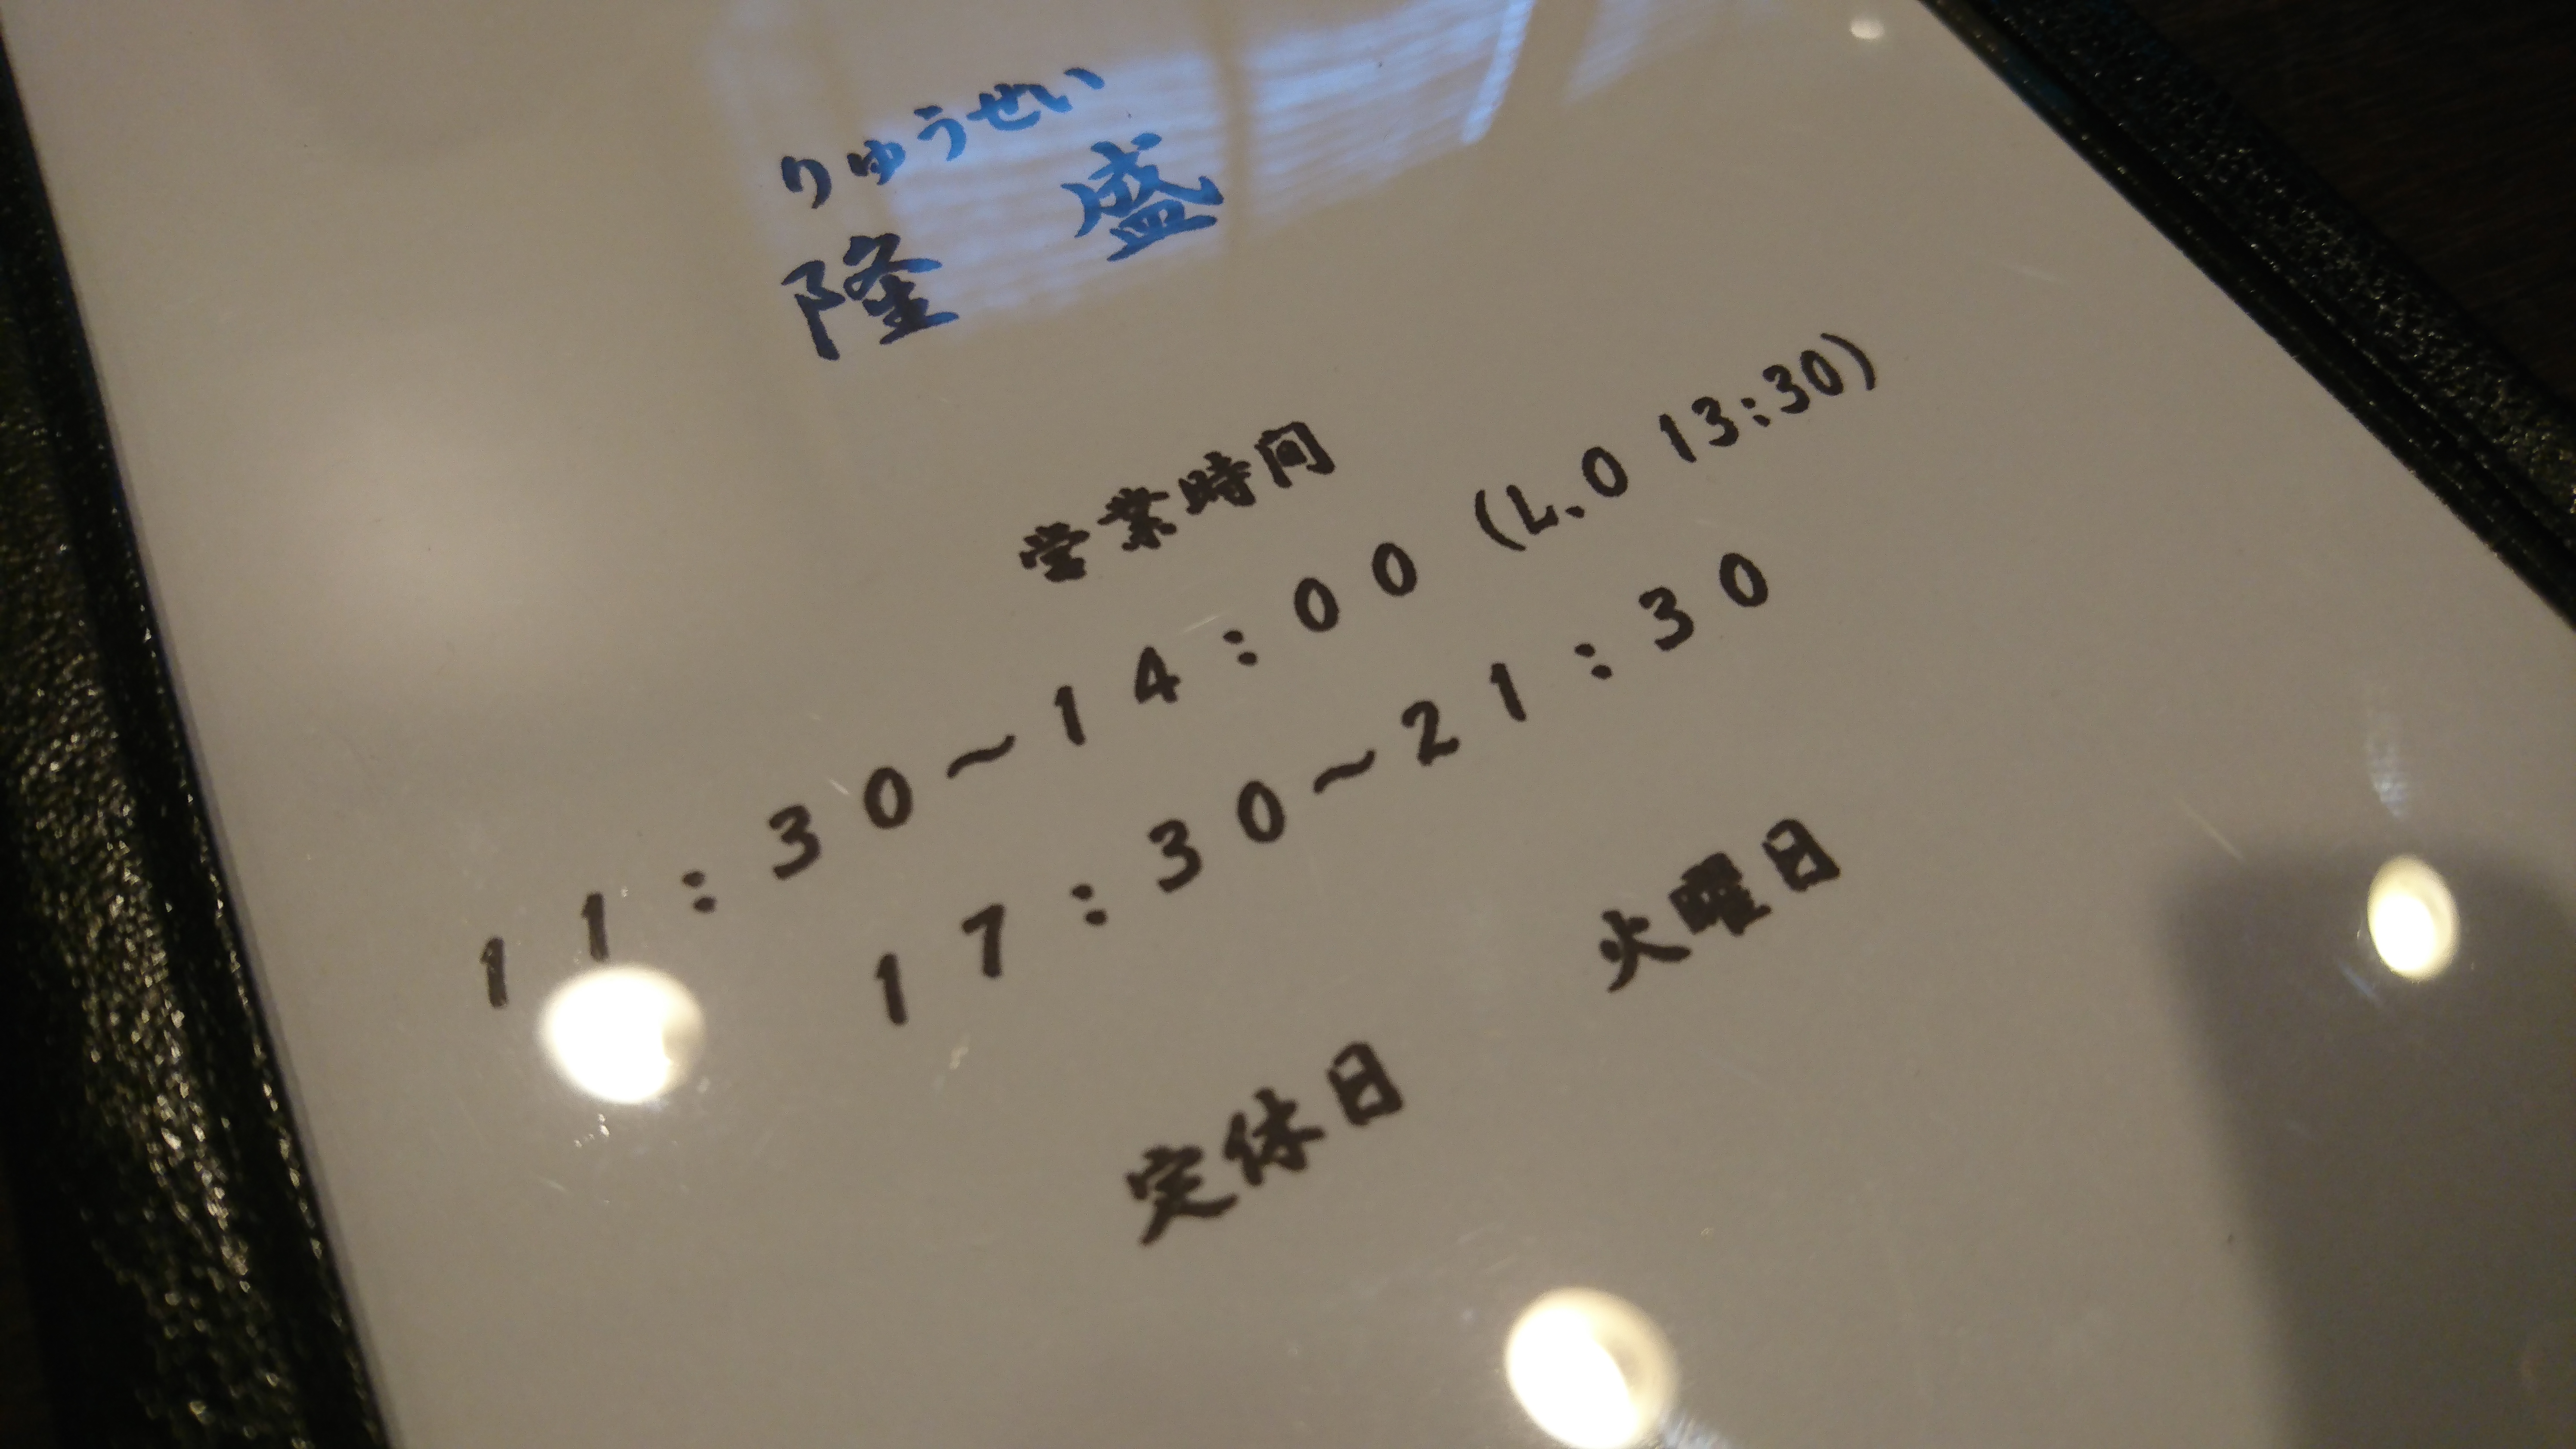 りゅうせい
隆　盛
営業時間
１１：３０～１４：００ (L.O 13:30)
１７：３０～２１：３０
定休日　火曜日